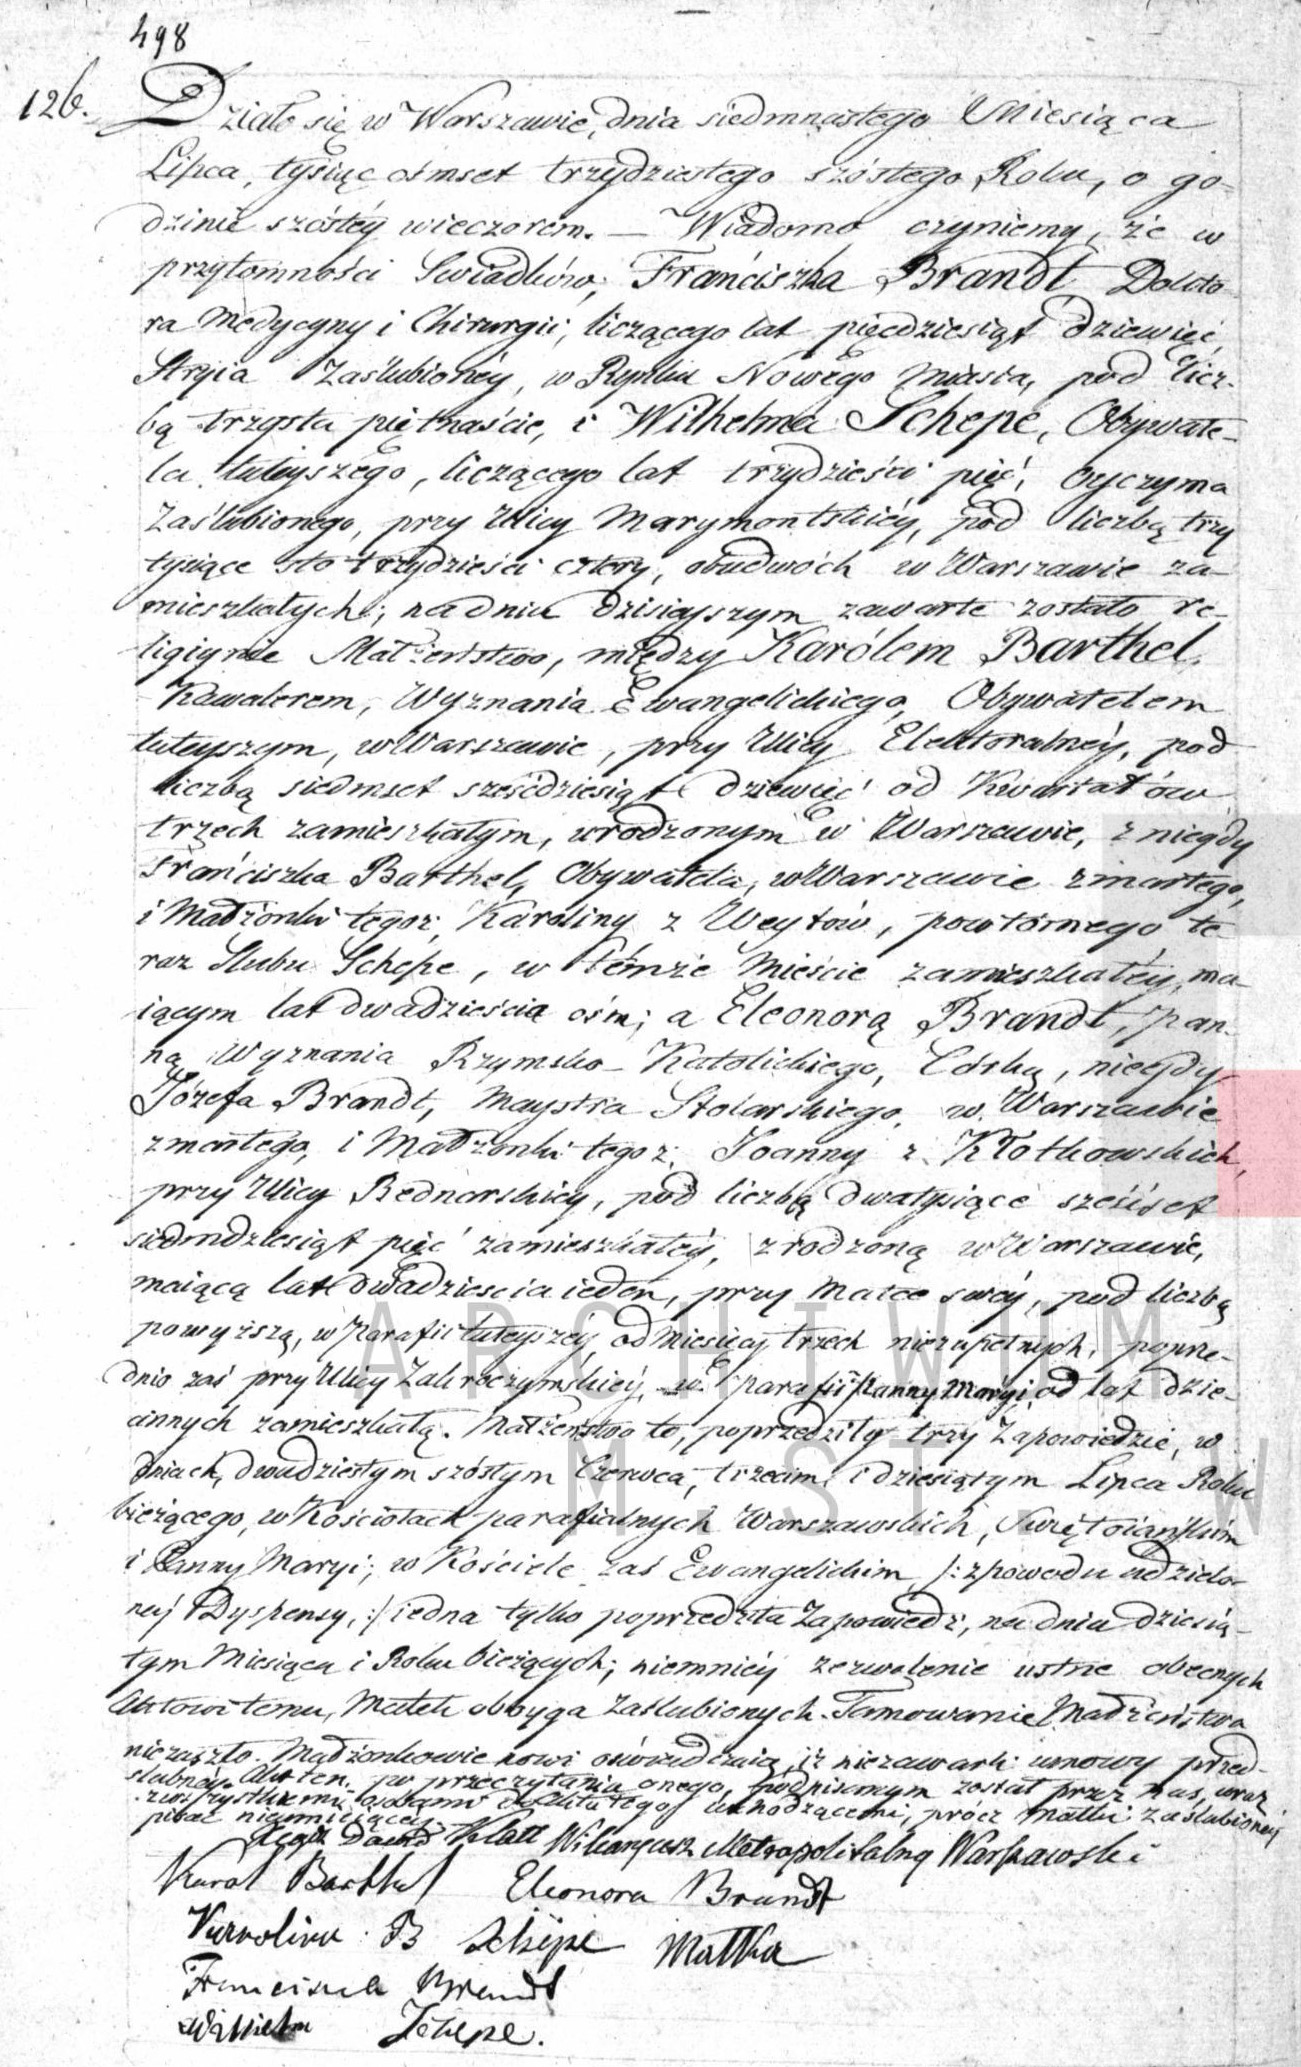 498
126. Działo się w Warszawie, dnia siedmnastego Miesiąca
Lipca, tysiąc ośmset trzydziestego szóstego Roku, o go-
dzinie szóstéy wieczorem. — Wiadomo czyniemy, że w
przytomności Swiadków, Franciszka Brandt Dokto-
ra Medycyny i Chirurgii, liczącego lat pięćdziesiąt dziewięć,
Stryia Zaślubionéy, w Rynku Nowego Miasta, pod licz-
bą trzysta piętnaście, i Wilhelma Schepe, Obywate-
la tuteyszego, liczącego lat trzydzieści pięć, oyczyma
Zaślubionego, przy Ulicy Marymontskiéy, pod liczbą trzy
tysiące sto trzydzieści cztery, obudwóch w Warszawie za-
mieszkałych; na dniu dzisieyszym zawarte zostało re-
ligiynie Małżeństwo, między Karólem Barthel,
Kawalerem, Wyznania Ewangelickiego, Obywatelem
tuteyszym, w Warszawie, przy Ulicy Elektoralnéy, pod
liczbą siedmset sześćdziesiąt dziewięć od Kwartałów
trzech zamieszkałym, urodzonym w Warszawie, z niegdy
Franciszka Barthel, Obywatela, w Warszawie zmarłego,
i Małżonki tegoż, Karoliny z Weytów, powtórnego te-
raz Slubu Schepe, w témże Mieście zamieszkałéy, ma-
iącym lat dwadzieścia ośm; a Eleonorą Brandt, Pan-
ną, Wyznania Rzymsko-Katolickiego, Córką, niegdy
Józefa Brandt, Maystra Stolarskiego, w Warszawie
zmarłego, i Małżonki tegoż, Joanny z Kłotkowskich,
przy Ulicy Bednarskiéy, pod liczbą dwatysiące sześćset
siedmdziesiąt pięć zamieszkałéy, zrodzoną w Warszawie,
maiącą lat dwadzieścia ieden, przy Matce swéy, pod liczbą
powyższą, w Parafii tuteyszéy, od Miesięcy trzech niezupełnych, poprze-
dnio zaś przy Ulicy Zakroczymskiéy, w Parafii Panny Maryi, od lat dzie-
cinnych zamieszkałą. Małżeństwo to, poprzedziły trzy Zapowiedzie, w
dniach, dwudziestym szóstym Czerwca, trzecim, i dziesiątym Lipca Roku
bieżącego, w Kościołach parafialnych Warszawskich, Swiętoiańskim
i Panny Maryi; w Kościele zaś Ewangelickim /: z powodu udzielo-
néy Dyspensy, :/ iedna tylko poprzedziła Zapowiedź, na dniu dziesią-
tym Miesiąca i Roku bieżących; niemniéy zezwolenie ustne obecnych
Aktowi temu, Matek oboyga Zaślubionych. Tamowanie Małżeństwa
niezaszło. Małżonkowie nowi oświadczaią, iż niezawarli umowy przed-
slubnéy. Akt ten, po przeczytaniu onego, podpisanym został przez nas, wraz
z wszystkiemi osobami do Aktu tego wchodzącemi, prócz Matki Zaślubionéy
pisać nieumieiącéy.
Klatt Wikaryusz Metropolitalny Warszawski
Karol Barthel Eleonora Brandt
Karolina B Schepe Matka
Franciszek Brandt
Wilhelm Schepe.
ARCHIWUM
M. ST. W